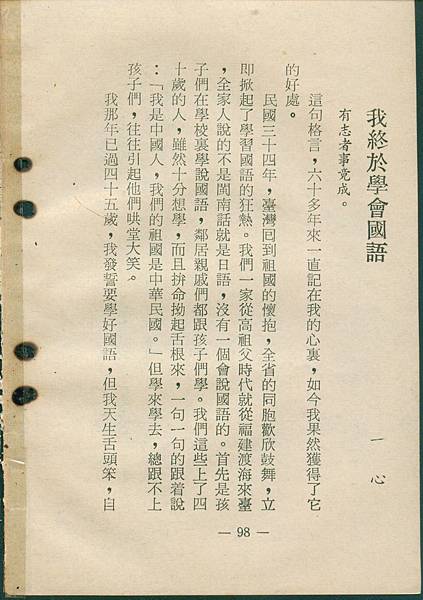 我終於學會國語
一心
有志者事竟成。
這句格言，六十多年來一直記在我的心裏，如今我果然獲得了它
的好處。
民國三十四年，臺灣囘到祖國的懷抱，全省的同胞歡欣鼓舞，立
即掀起了學習國語的狂熱。我們一家從高祖父時代就從福建渡海來臺
，全家人說的不是閩南話就是日語，沒有一個會說國語的。首先是孩
子們在學校裏學說國語，鄰居親戚們都跟孩子們學。我們這些上了四
十歲的人，雖然十分想學，而且拚命拗起舌根來，一句一句的跟着說
：「我是中國人，我們的祖國是中華民國。」但學來學去，總跟不上
孩子們，往往引起他們哄堂大笑。
我那年已過四十五歲，我發誓要學好國語，但我天生舌頭笨，自
— 98 —